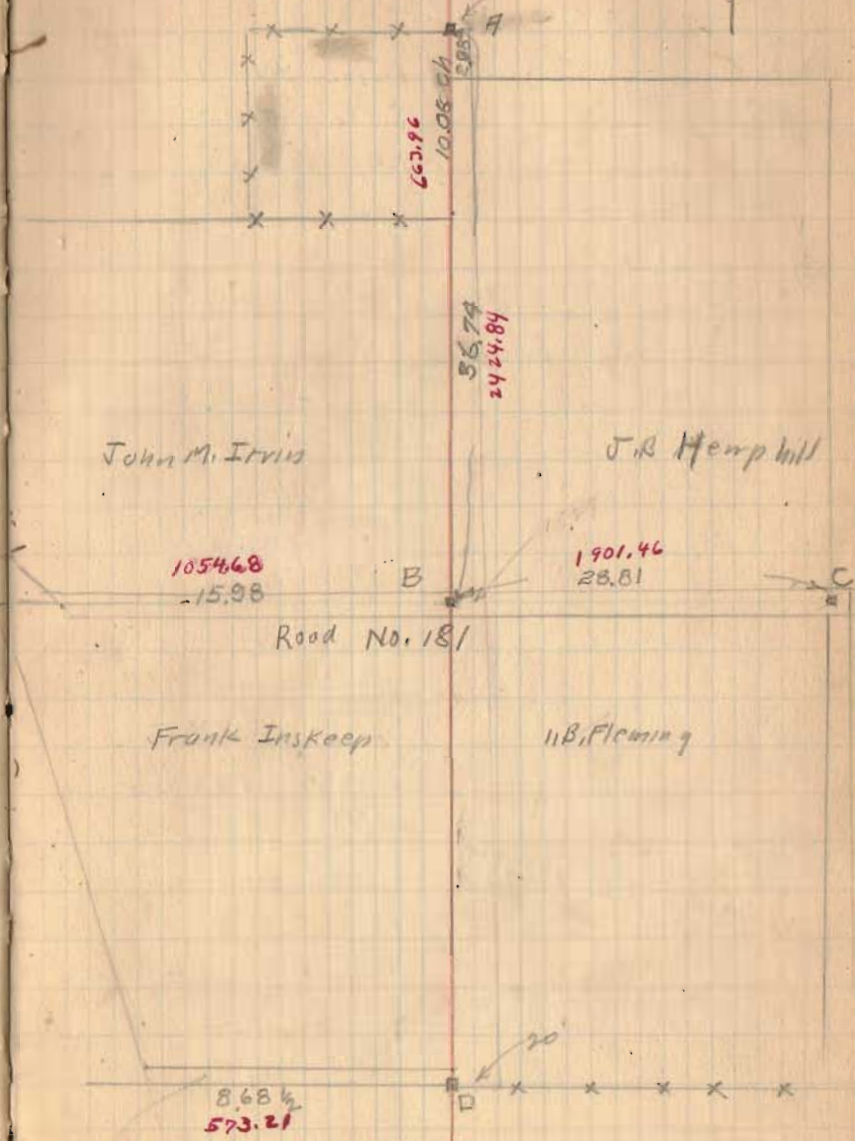 A
10.06 ch
663.96
36.74
2424.84
John M. Irvin
J.B Hemphill
1054.68
15.98
B
1901.46
28.81
C
Road No. 181
Frank Inskeep
B. Fleming
20
8.68 ½
573.21
D